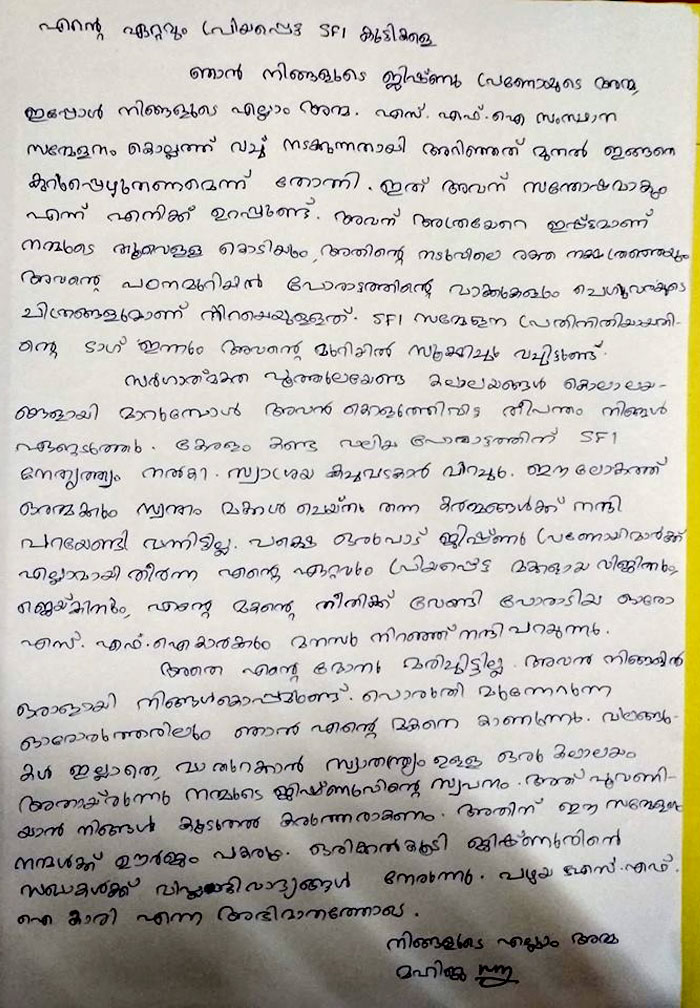 എന്റെ ഏറ്റവും പ്രിയപ്പെട്ട SFI കുട്ടികളെ
ഞാൻ നിങ്ങളുടെ ജിഷ്ണു പ്രണോയുടെ അമ്മ,
ഇപ്പോൾ നിങ്ങളുടെ എല്ലാം അമ്മ. എസ്. എഫ്.ഐ സംസ്ഥാന
സമ്മേളനം കൊല്ലത്ത് വച്ച് നടക്കുന്നതായി അറിഞ്ഞത് മുതൽ ഇങ്ങനെ
കുറിപ്പെഴുതണമെന്ന് തോന്നി. ഇത് അവന് സന്തോഷവാകും
എന്ന് എനിക്ക് ഉറപ്പുണ്ട്. അവന് അത്രയേറെ ഇഷ്ടമാണ്
നമ്മുടെ തൂവെള്ള കൊടിയും, അതിന്റെ നടുവിലെ രക്ത നക്ഷത്രത്തെയും
അവന്റെ പഠനമുറിയിൽ പോരാട്ടത്തിന്റെ വാക്കുകളും ചെഗുവരയുടെ
ചിത്രങ്ങളുമാണ് നിറയെയുള്ളത്. SFI സമ്മേളന പ്രതിനിതിയായതി-
ന്റെ ടാഗ് ഇന്നും അവന്റെ മുറിയിൽ സൂക്ഷിച്ചു വച്ചിട്ടുണ്ട്.
സർഗാത്മകത പൂത്തുലയേണ്ട കലാലയങ്ങൾ കൊലാലയ-
ങ്ങളായി മാറുമ്പോൾ അവൻ കൊളുത്തിവിട്ട തീപന്തം നിങ്ങൾ
ഏറ്റെടുത്തു. കേരളം കണ്ട വലിയ പോരാട്ടത്തിന് SFI
നേതൃത്ത്വം നൽകി. സ്വാശ്രയ കച്ചവടകാർ വിറച്ചു. ഈ ലോകത്ത്
ഒരമ്മക്കും സ്വന്തം മക്കൾ ചെയ്തു തന്ന കർമ്മങ്ങൾക്ക് നന്ദി
പറയേണ്ടി വന്നിട്ടില്ല. പക്ഷെ ഒരുപാട് ജിഷ്ണു പ്രണോയിമാർക്ക്
എല്ലാമായി തീർന്ന എന്റെ ഏറ്റവും പ്രിയപ്പെട്ട മക്കളായ വിജിനും,
ജെയ്ക്കിനും, എന്റെ മകന്റെ നീതിക്ക് വേണ്ടി പോരാടിയ ഓരോ
എസ്. എഫ്.ഐകാർക്കും മനസു നിറഞ്ഞ് നന്ദി പറയുന്നു.
അതെ എന്റെ മോനു മരിച്ചിട്ടില്ല. അവൻ നിങ്ങളിൽ
ഒരാളായി നിങ്ങൾക്കൊപ്പമുണ്ട്. പൊരുതി മുന്നേറുന്ന
ഓരോരുത്തരിലും ഞാൻ എന്റെ മകനെ കാണുന്നു. വിലങ്ങു-
കൾ ഇല്ലാതെ, വാ തുറക്കാൻ സ്വാതന്ത്ര്യം ഉള്ള ഒരു കലാലയം
അതായ്രുന്നു നമ്മുടെ ജിഷ്ണുവിന്റെ സ്വപനം. അത് പൂവണി-
യാൻ നിങ്ങൾ കൂടുതൽ കരുത്തരാകണം. അതിന് ഈ സമ്മേളനം
നമ്മൾക്ക് ഊർജ്ജം പകരും. ഒരിക്കൽകൂടി ജിഷ്ണുവിന്റെ
സഖാകൾക്ക് വിപ്ലവാഭിവാദ്യങ്ങൾ നേരുന്നു. പഴയ എസ്.എഫ്.
ഐ കാരി എന്ന അഭിമാനത്തോടെ.
നിങ്ങളുടെ എല്ലാം അമ്മ
മഹിജ